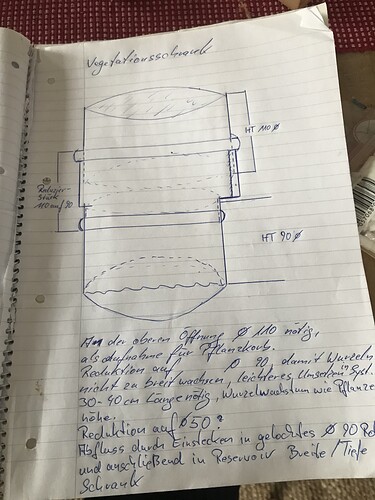 Vegetationsschrank
HT 110 Ø
Reduzier-
Stück
110 auf 90
HT 90 Ø
An der oberen Öffnung Ø 110 nötig,
als Aufnahme für Pflanzkorb.
Reduktion auf Ø 90, damit Wurzeln
nicht zu breit wachsen, leichteres Umsetzen Syst.
30-40cm Länge nötig, Wurzelwachstum wie Pflanzen
höhe.
Reduktion auf Ø50?
Abfluss durch Einstecken in gelochtes Ø 90
und anschließend in Reservoir Breite/Tiefe
Schrank